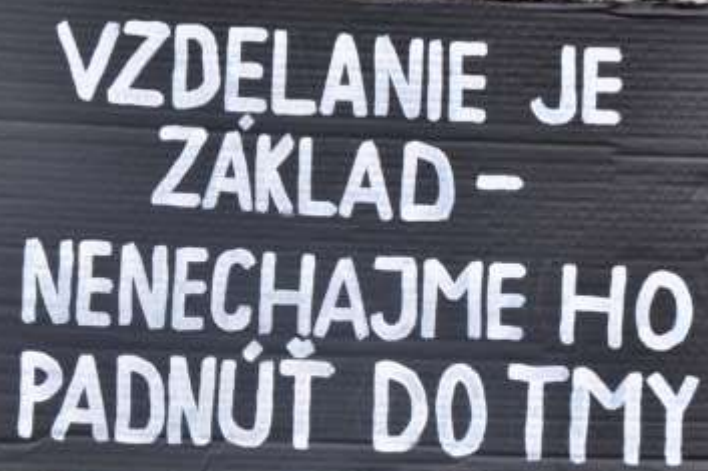 VZDELANIE JE
ZÁKLAD -
NENECHAJME HO
PADNÚŤ DO TMY